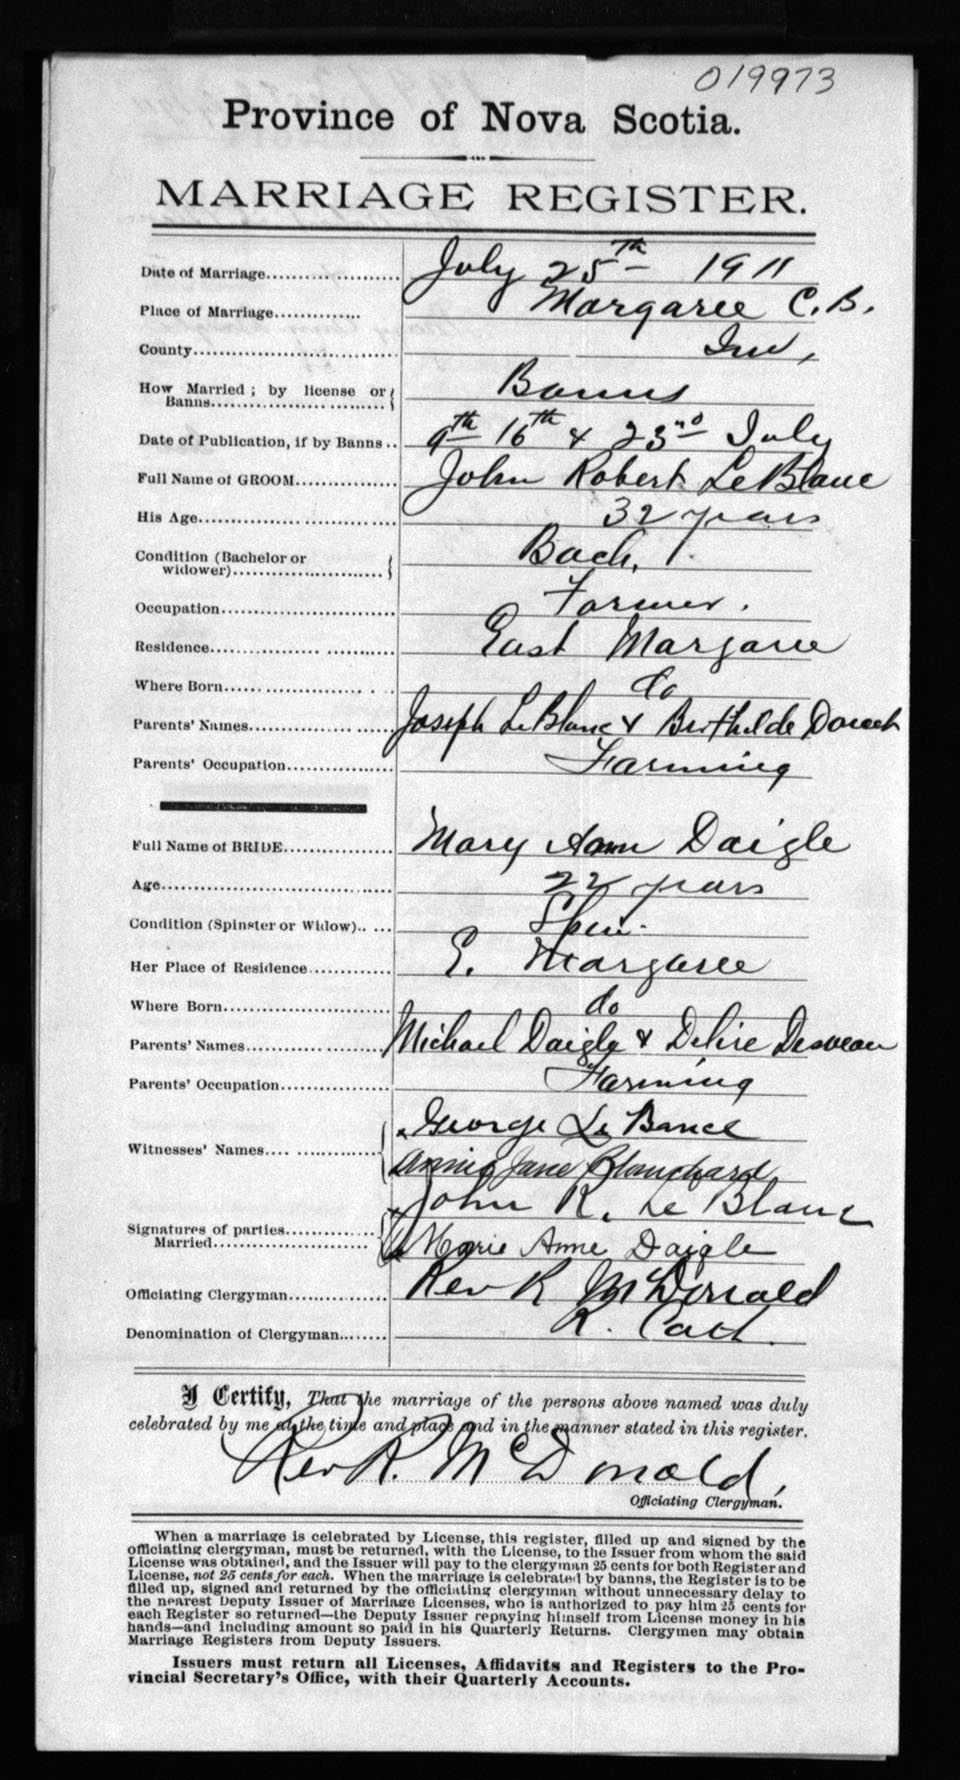 019973
Province of Nova Scotia.
MARRIAGE REGISTER.
Date of Marriage.................. July 25th 1911
Place of Marriage............. Margaree C.B.
County............................ Inv,
How Married ; by license or
Banns........................ Banns
Date of Publication, if by Banns .. 9th 16th & 23rd July
Full Name of GROOM............... John Robert LeBlanc
His Age............................. 32 years
Condition (Bachelor or
widower)...................... Bach.
Occupation.......................... Farmer.
Residence............................ East Margaree
Where Born....................... do
Parents' Names..................... Joseph LeBlanc & Berthilde Doucet
Parents' Occupation............... Farming
Full Name of BRIDE................ Mary Ann Daigle
Age................................. 22 years
Condition (Spinster or Widow).. ... Spin.
Her Place of Residence............ E. Margaree
Where Born......................... do
Parents' Names..................... Michael Daigle & Delire Desveau
Parents' Occupation............... Farming
Witnesses' Names.... .............. George Le Bance
Annie Jane Blanchard
John R. Le Blanc
Signatures of parties..............
Married...................... Marie Anne Daigle
Officiating Clergyman.............. Rev R McDonald
Denomination of Clergyman........ R. Cath.
I Certify, That the marriage of the persons above named was duly
celebrated by me at the time and place and in the manner stated in this register.
Rev R. McDonald,
Officiating Clergyman.
When a marriage is celebrated by License, this register, filled up and signed by the
officiating clergyman, must be returned, with the License, to the Issuer from whom the said
License was obtained, and the Issuer will pay to the clergyman 25 cents for both Register and
License, not 25 cents for each. When the marriage is celebrated by banns, the Register is to be
filled up, signed and returned by the officiating clergyman without unnecessary delay to
the nearest Deputy Issuer of Marriage Licenses, who is authorized to pay him 25 cents for
each Register so returned—the Deputy Issuer repaying himself from License money in his
hands—and including amount so paid in his Quarterly Returns. Clergymen may obtain
Marriage Registers from Deputy Issuers.
Issuers must return all Licenses, Affidavits and Registers to the Pro-
vincial Secretary's Office, with their Quarterly Accounts.